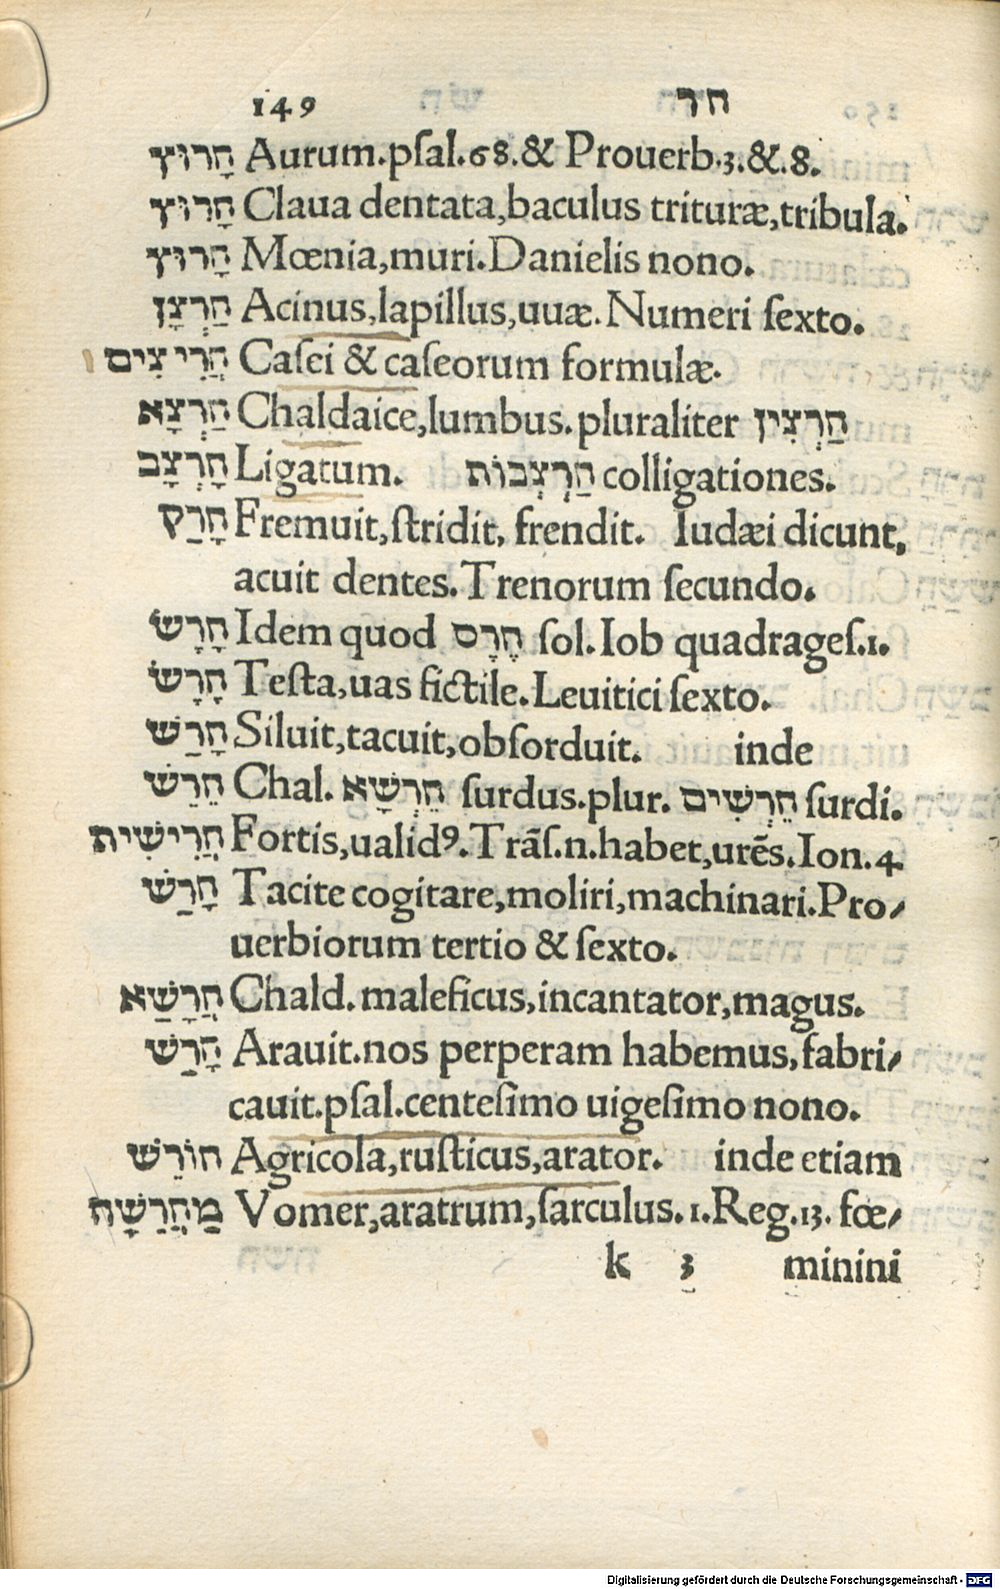 149 חר
חָרוּץ Aurum.pſal.68.& Prouerb.3.&.8.
חָרוּץ Claua dentata,baculus trituræ,tribula.
חָרוּץ Mœnia,muri.Danielis nono.
חַרְצָן Acinus,lapillus,uuæ.Numeri ſexto.
חֲרִיצִים Caſei & caſeorum formulæ.
חַרְצָא Chaldaice,lumbus.pluraliter חַרְצִין
חָרְצָב Ligatum. חַרְצְבוֹת colligationes.
חָרַק Fremuit,ſtridit, frendit. Iudæi dicunt,
acuit dentes.Trenorum ſecundo.
חָרָשׂ Idem quod חֶרָס ſol.Iob quadrageſ.1.
חָרָשׂ Teſta,uas fictile.Leuitici ſexto.
חָרַשׁ Siluit,tacuit,obſorduit. inde
חֵרֵשׁ Chal. חֵרְשָׁא ſurdus.plur. חֵרְשִׁים ſurdi.
חֲרִישִׁית Fortis,ualidꝰ.Trãſ.n.habet,urẽs.Ion.4
חָרַשׁ Tacite cogitare,moliri,machinari.Pro/
uerbiorum tertio & ſexto.
חֲרָשַׁא Chald. maleficus,incantator,magus.
חָרַשׁ Arauit.nos perperam habemus,fabri/
cauit.pſal.centeſimo uigeſimo nono.
חוֹרֵשׁ Agricola,ruſticus,arator. inde etiam
מַחֲרֵשָׁה Vomer,aratrum,ſarculus.1.Reg.13. fœ/
k 3 minini
Digitalisierung gefördert durch die Deutsche Forschungsgemeinschaft - DFG